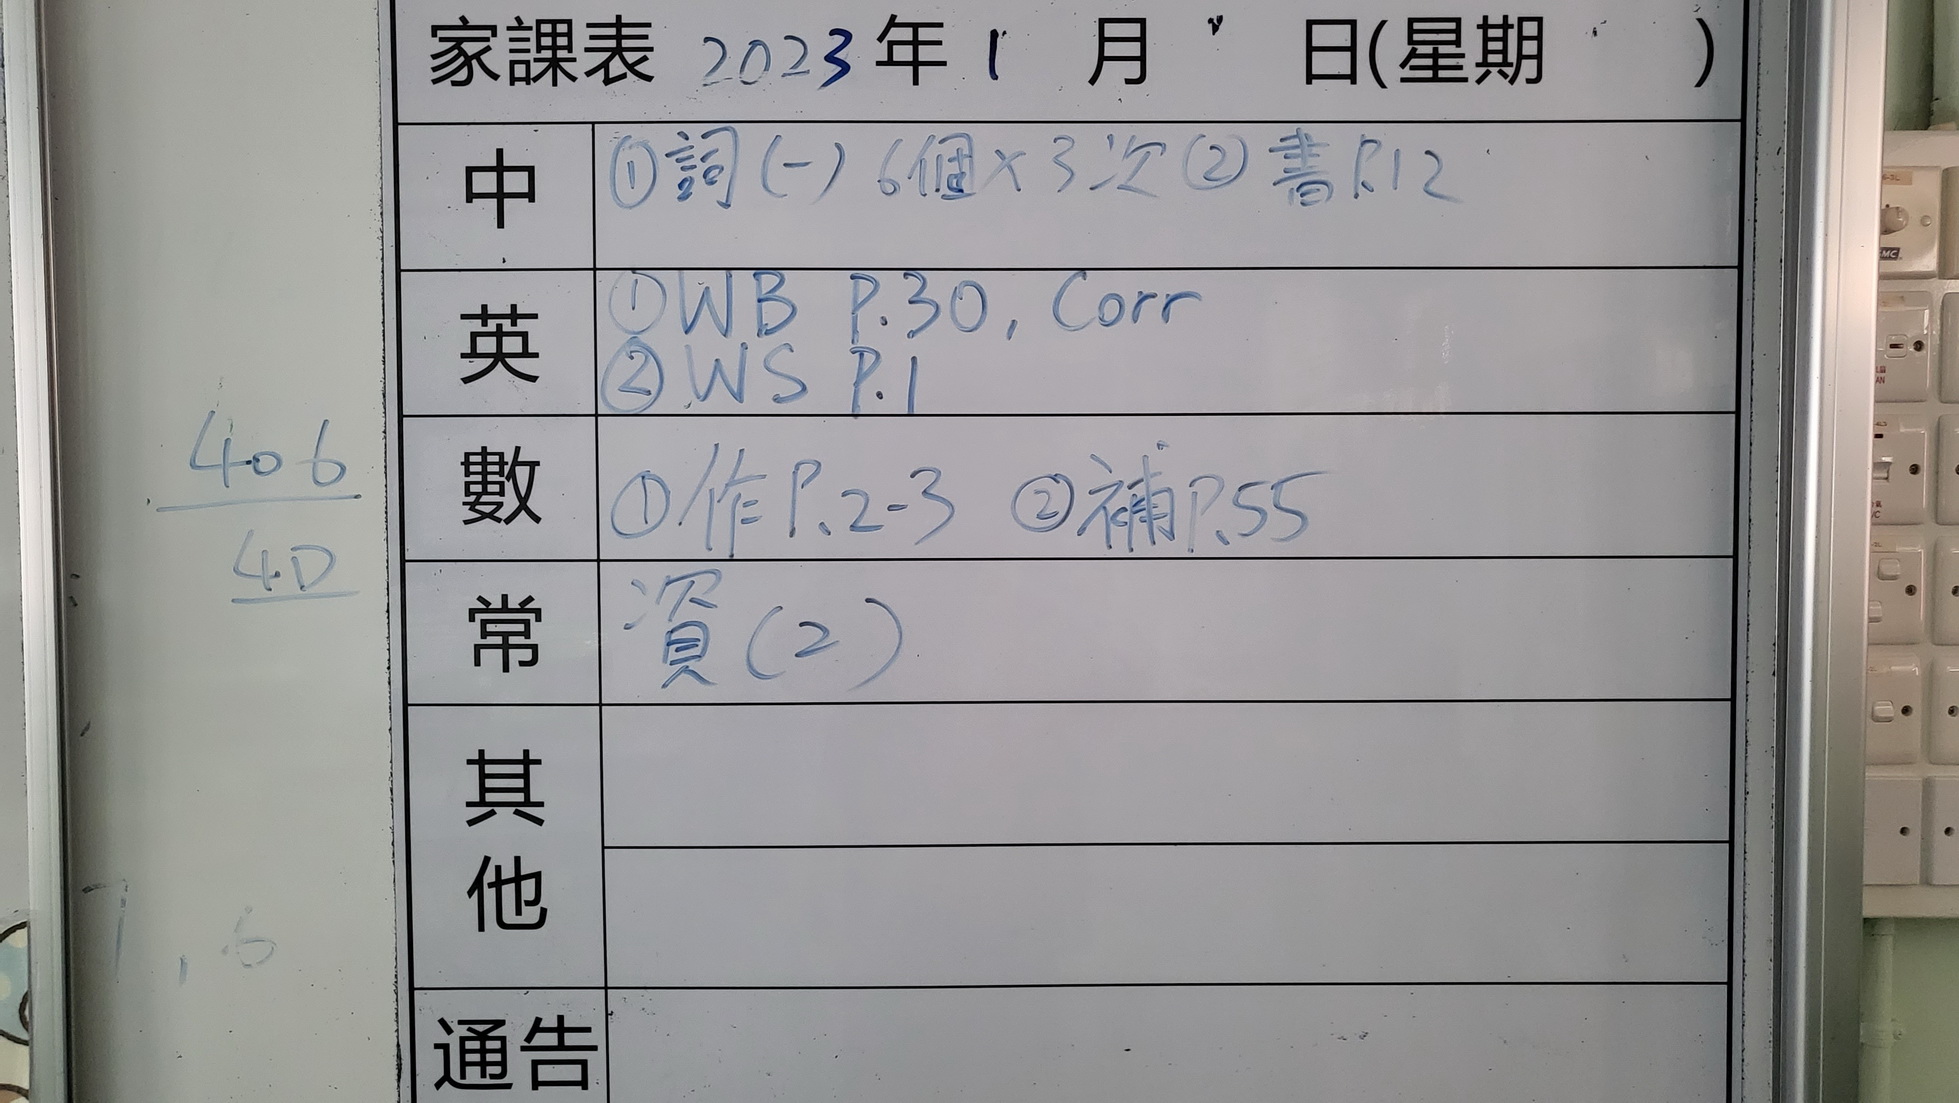 家課表 2023年1月 日(星期 )
中
①詞(一)6個×3次②書P.12
英
①WB P.30, Corr
②WS P.1
數
①作P.2-3 ②補P.55
常
資(2)
其他
通告
406
4D
7, 6